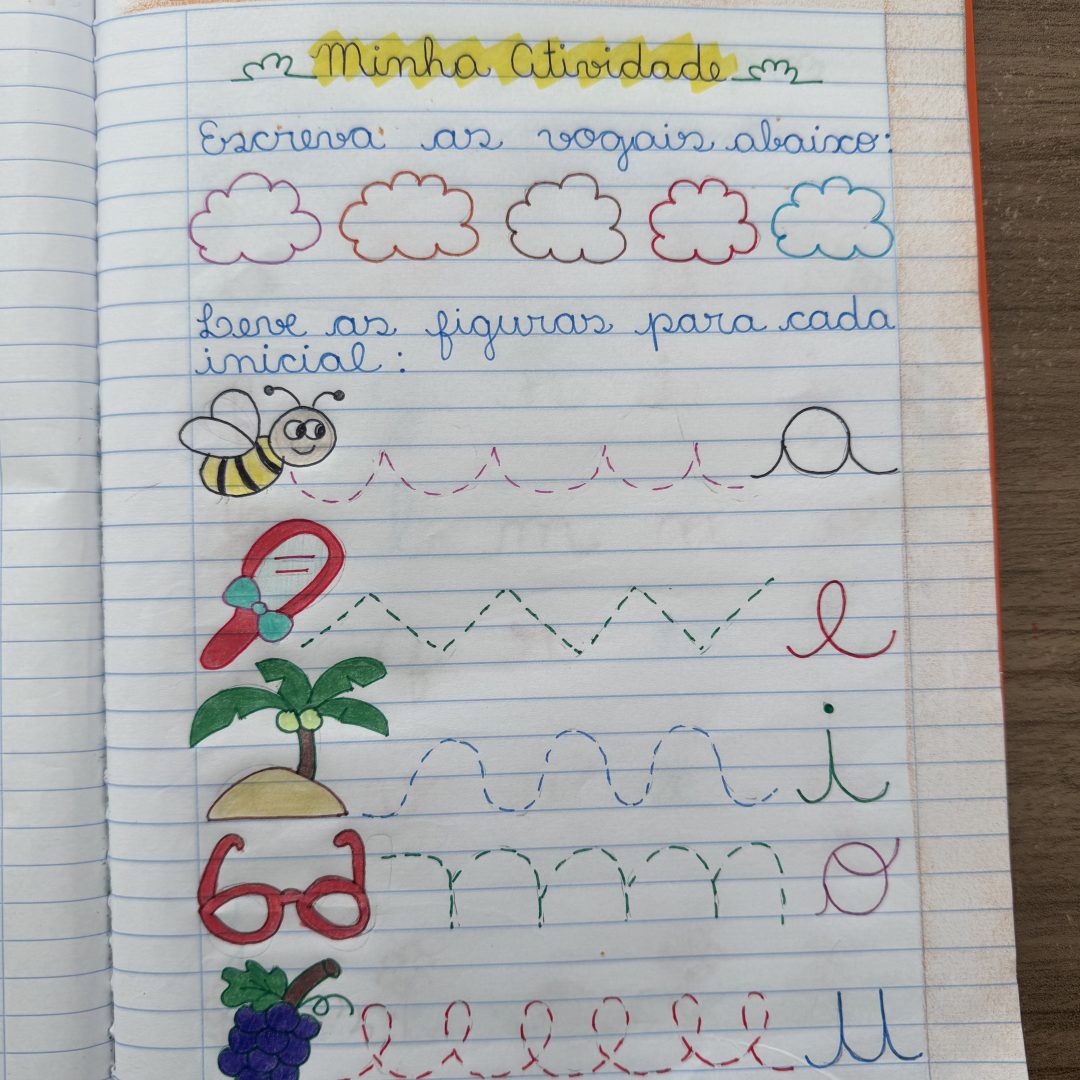 Minha Atividade
Escreva as vogais abaixo:
Leve as figuras para cada
inicial:
a
e
i
o
u